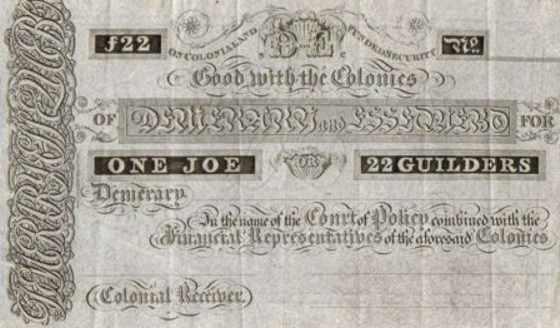 ƒ22 ON COLONIAL AND FUNDED SECURITY No
Good with the Colonies
OF DEMERARY and ESSEQUEBO FOR
ONE JOE OR 22 GUILDERS
Demerary
In the name of the Court of Policy combined with the
Financial Representatives of the aforesaid Colonies
Colonial Receiver